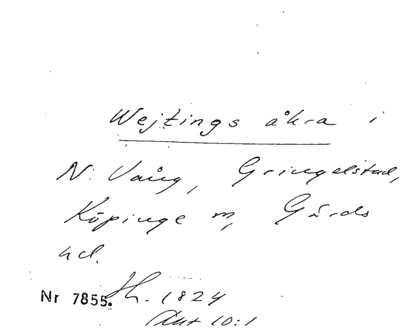 Wejtings åkra i
N. Vång, Gringelstad,
Köpinge m, Gärds
hd.
Nr 7855. Jh. 1824
Akt 10:1